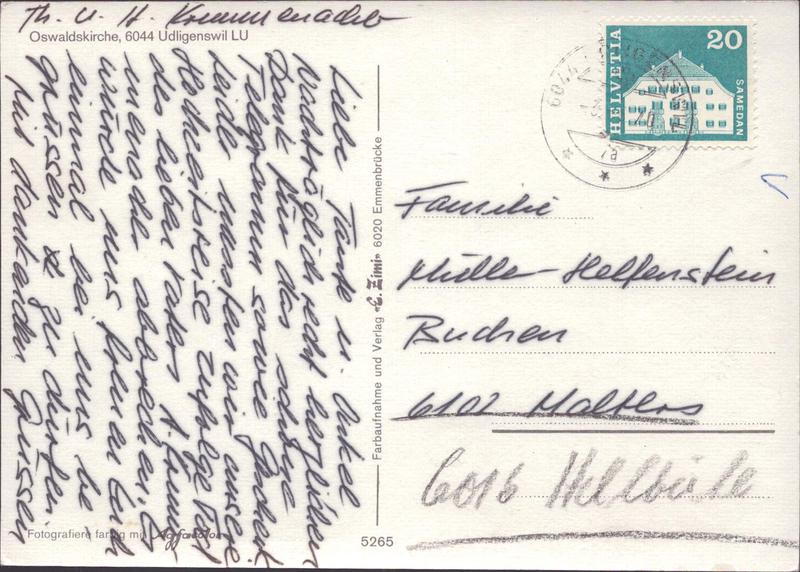 Th. u. H. Krummenacher
Oswaldskirche, 6044 Udligenswil LU
Liebe Tante u. Onkel
Nachträglich recht herzlichen
Dank für das schöne
Telegramm sowie Geschenk
Leider mussten wir unsere
Hochzeitsreise zufolge Tod
des lieben Vaters A. Krumm-
enacher abbrechen. Es
würde uns freuen Euch
einmal bei uns be-
grüssen zu dürfen
Mit dankenden Grüssen
Fotografiere farbig mit Agfacolor
Farbaufnahme und Verlag «E. Zimi» 6020 Emmenbrücke
5265
HELVETIA
20
SAMEDAN
6044 UDLIGENSWIL
Familie
Müller-Helfenstein
Buchen
6102 Malters
6016 Hellbüle